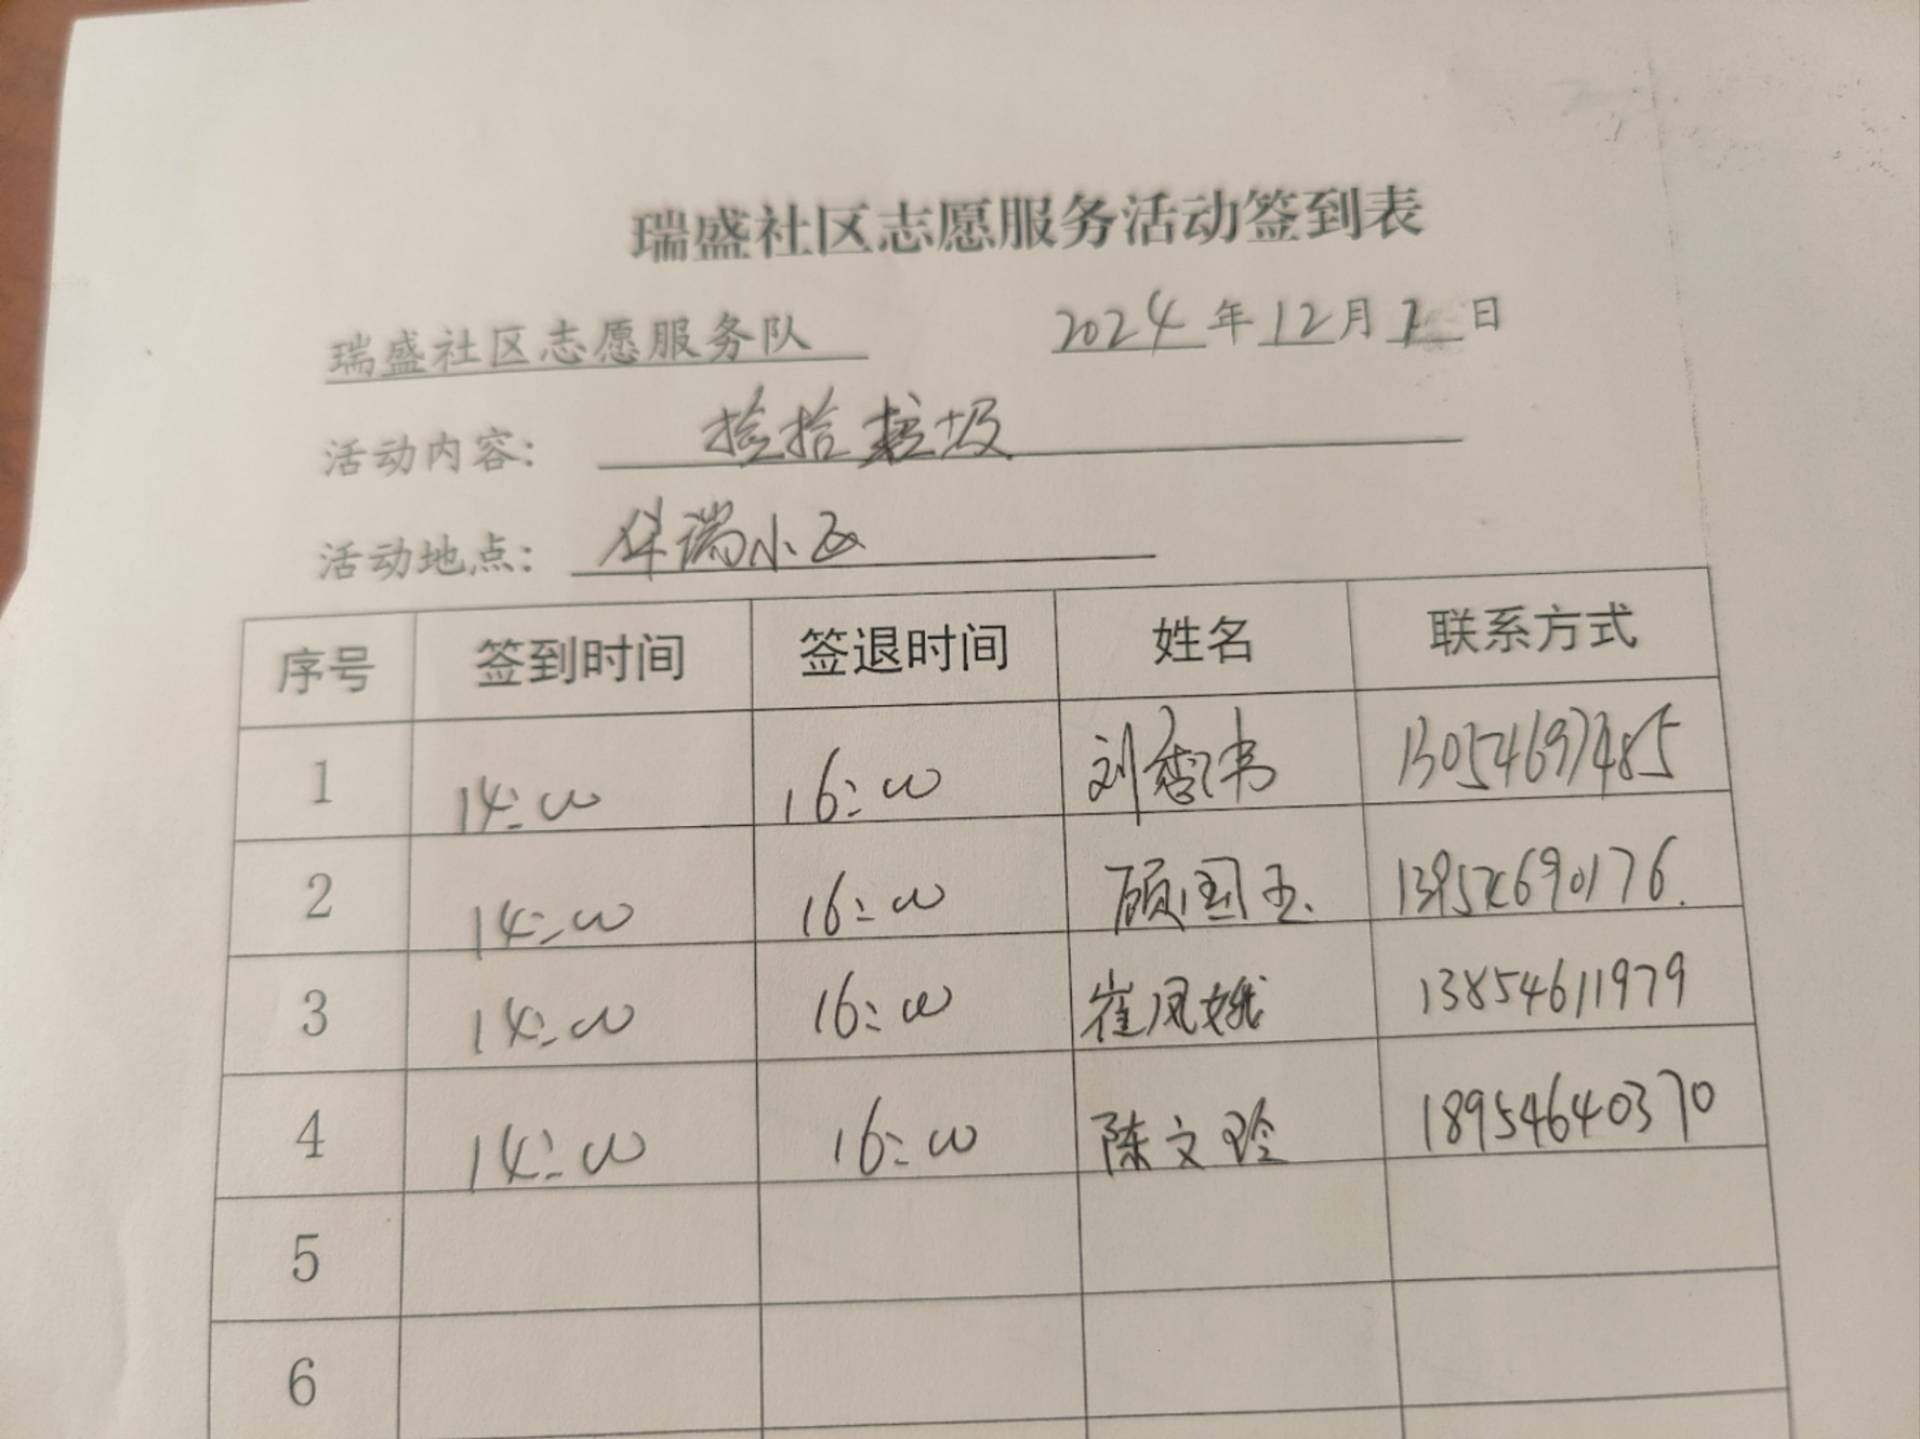 瑞盛社区志愿服务活动签到表
瑞盛社区志愿服务队 2024年12月1日
活动内容： 捡拾垃圾
活动地点： 华瑞小区
序号 签到时间 签退时间 姓名 联系方式
1 14:00 16:00 刘书 13054697485
2 14:00 16:00 顾国玉 13954690176.
3 14:00 16:00 崔凤娥 13854611979
4 14:00 16:00 陈文玲 18954640370
5
6